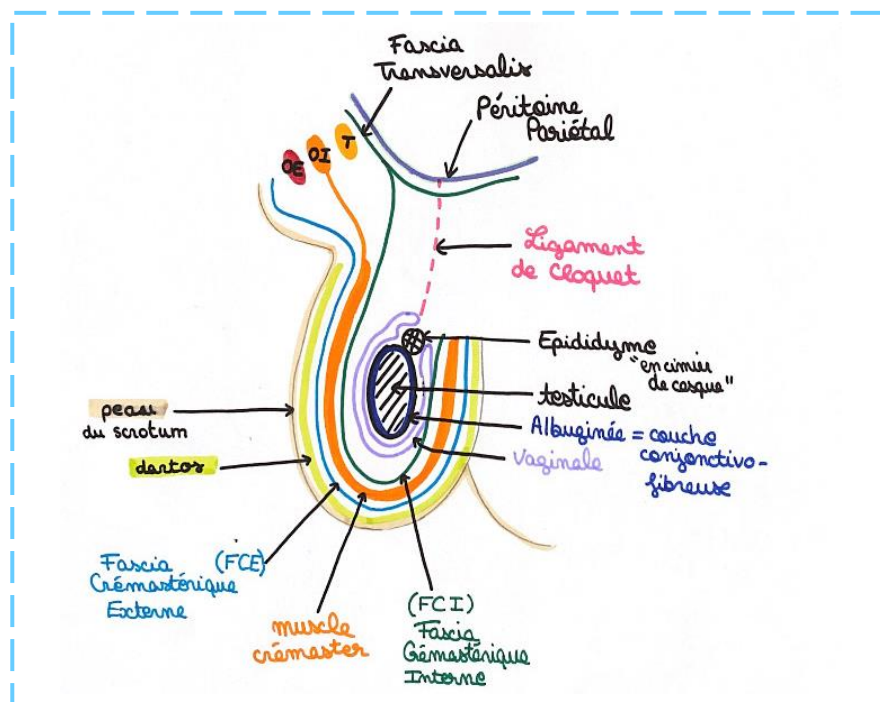 Fascia
Transversalis
Péritoine
Pariétal
OE
OI
T
Ligament
de Cloquet
Epididyme
"en cimier
de casque"
testicule
Albuginée = couche
conjonctivo-
fibreuse
Vaginale
peau
du scrotum
dartos
Fascia (FCE)
Crémastérique
Externe
muscle
crémaster
(FCI)
Fascia
Crémastérique
Interne